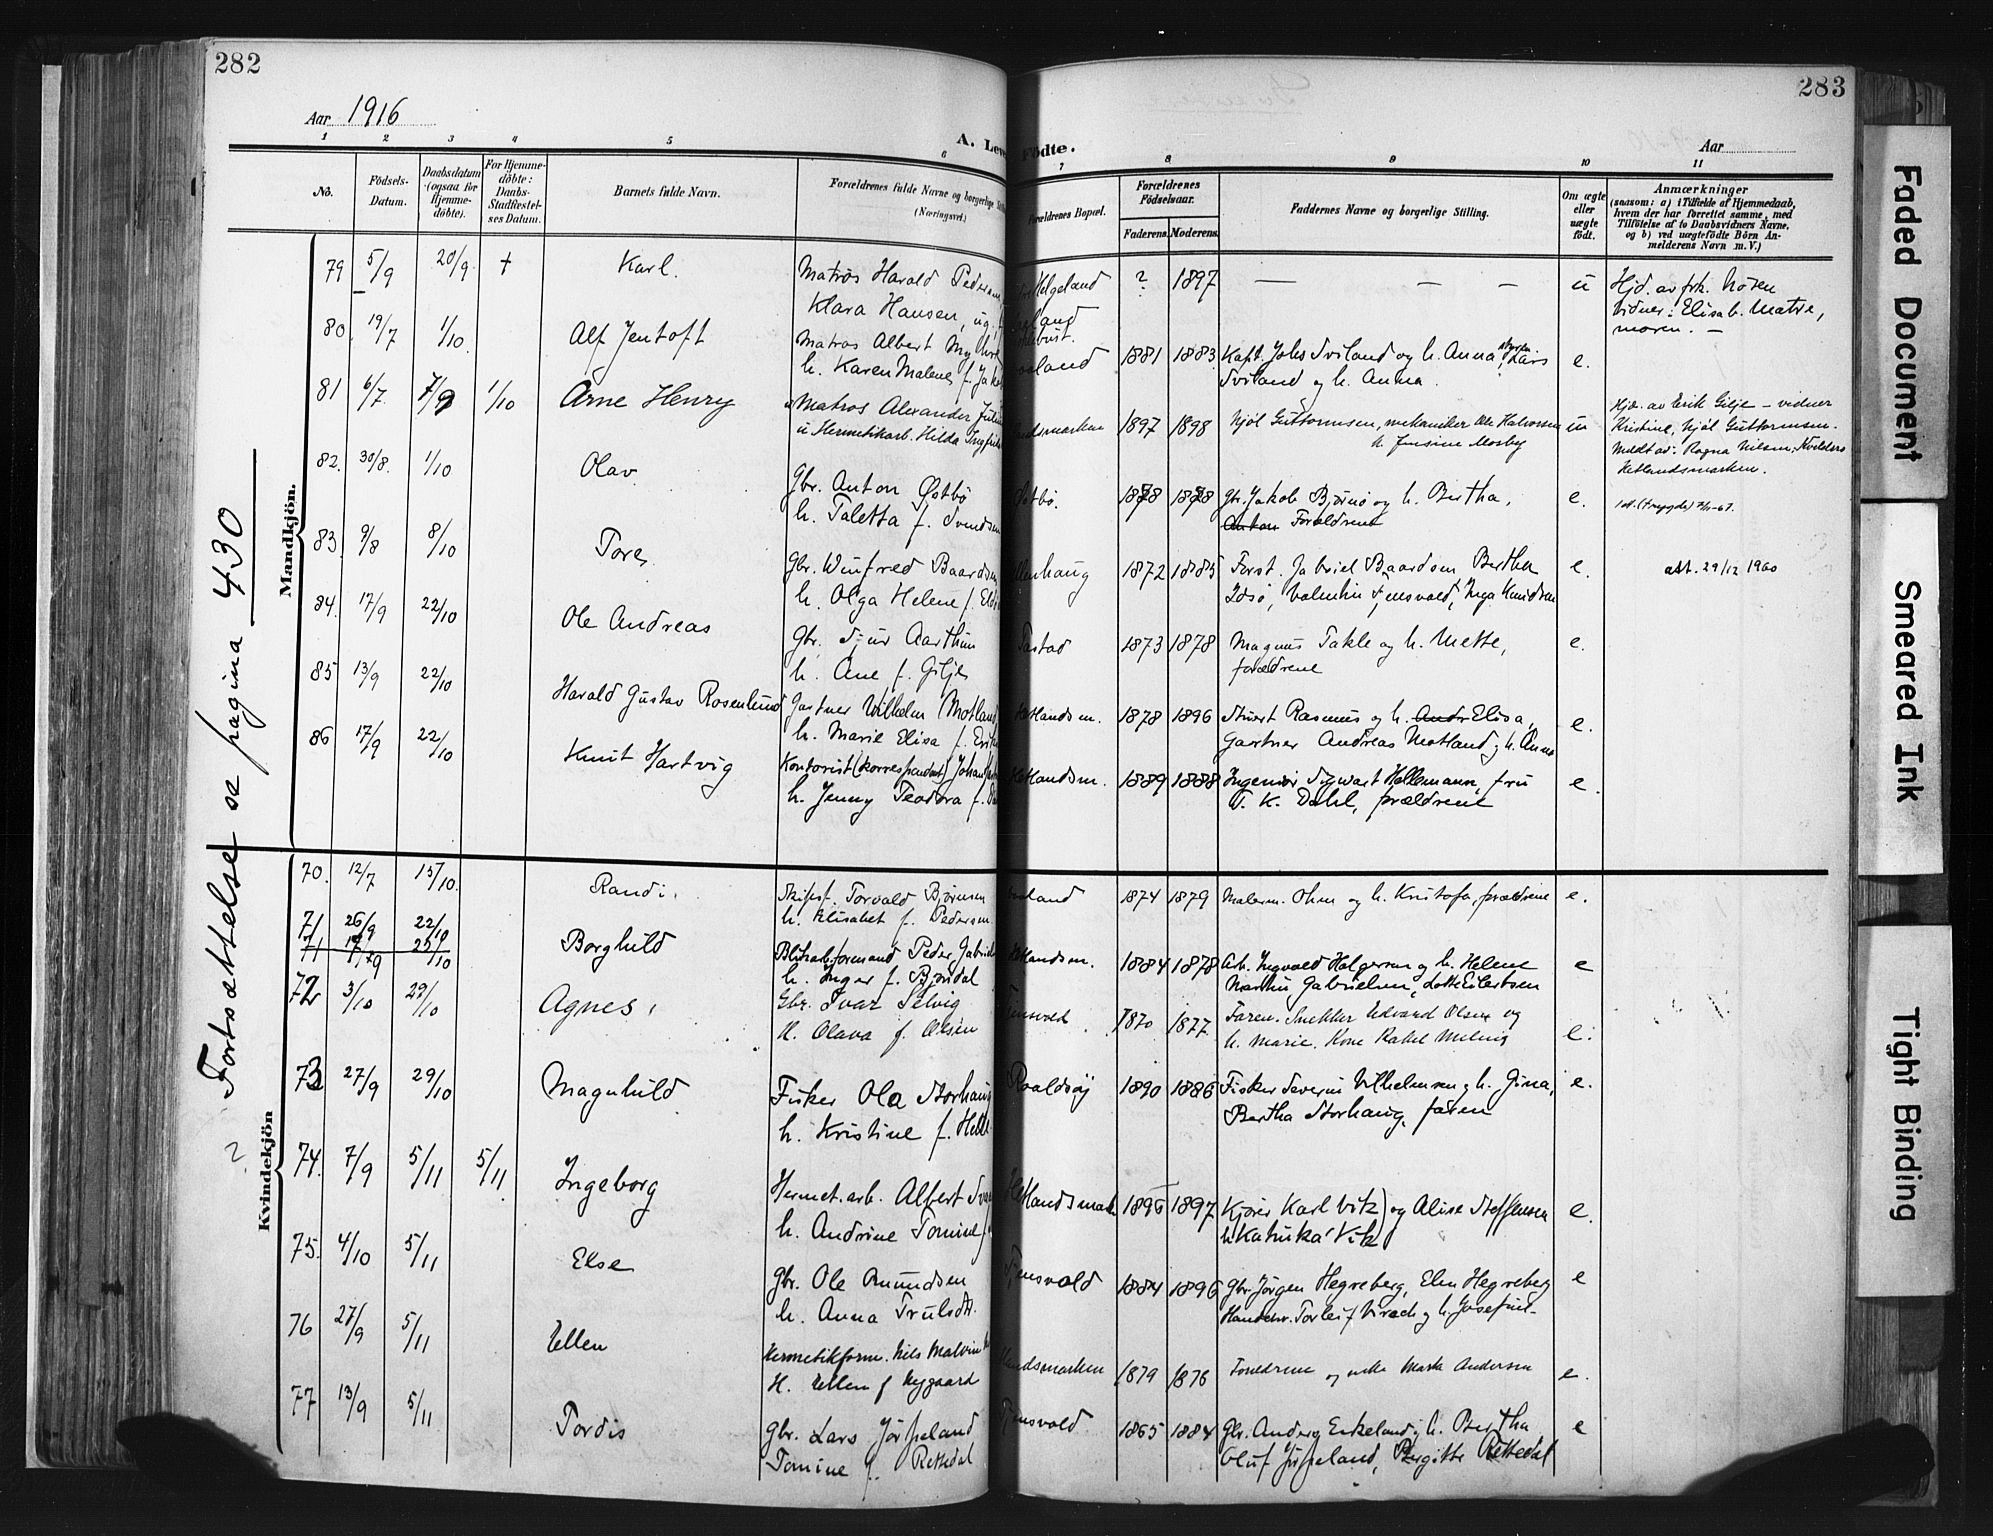 282
Aar 1916
A. Leve
1 2 3 4 5 6
No.
Födsels-Datum.
Daabsdatum (ogsaa for Hjemmedöbte).
For Hjemmedöbte: Daabs-Stadfæstelses Datum.
Barnets fulde Navn.
Forældrenes fulde Navne og borgerlige Stil
(Næringsvei.)
Mandkjön.
79 5/9 20/9 + Karl. Matros Harald Peders
Klara Hansen, ug.
80. 19/7 1/10 Alf Jentoft Matros Albert
h. Karen Malene f. Jak
81 6/7 7/9 1/10 Arne Henry Matros Alexander
u Hermetikarb. Hilda
82. 30/8. 1/10 Olav Gbr. Anton Østbø
h. Taletta f. Svends
83. 9/8 8/10 Tore Gbr. Winfred Baards
h. Olga Helene f.
84. 17/9 22/10 Ole Andreas Gbr. Sjur Aarthun
h. Ane f. Gilje
85 13/9 22/10 Harald Gustav Rosenlund Gartner Vilhelm Motland
h. Marie Elisa f.
86 17/9 22/10 Knut Hartvig Kontorist (korrespondent) Johan
h. Jenny Teodora f.
Fortsættelse se pagina 430
Kvindekjön
70. 12/7 15/10. Randi. Skipsf. Torvald Bjørnsen
h. Elisabet f. Pedersen
71 26/9 22/10 Borghild
71 17/9 25/10 Blikarb.formand Peder Gabriel
h. Inger f. Bjørndal
72 3/10 29/10 Agnes. Gbr. Ivar Selvig
H. Olava f. Olsen
73 27/9 29/10 Magnhild Fisker Ola Storhaug
h. Kristine f. Helle
74. 7/9 5/11 5/11 Ingeborg Hermet.arb. Albert
h. Andrine Tomine
75. 4/10 5/11 Else Gbr. Ole Amundsen
h. Anna Trulsdt.
76 27/9 5/11 Ellen Hermetikform. Nils Malvin
H. Ellen f Nygaard
77 13/9 5/11 Tordis Gbr. Lars Jørpeland
Tomine f. Rettedal
283
Födte.
Aar
7 8 9 10 11
Forældrenes Bopæl.
Forældrenes Födselsaar.
Faderens. Moderens.
Faddernes Navne og borgerlige Stilling.
Om ægte eller uægte födt.
Anmærkninger
(saasom: a) i Tilfælde af Hjemmedaab,
hvem der har forrettet samme, med
Tilföielse af to Daabsvidners Navne,
og b) ved uægtefödte Börn Anmelderens Navn m. V.)
Helgeland ? 1897 — — — u Hjd. av frk. Nösen
vidner: Elisab. Matre,
moren. —
1881 1883. Kapt. Johs Sviland og h. Anna, Lars e.
Sviland og h. Anna.
1897 1898 Njøl Guttormsen, mekaniker Ole Halvorsen u Hjd. av Erik Gilje – vidner
h. Jensine Mosby Kristine, Njøl Guttormsen.
Meldt av: Ragna Nilsen,
Hetlandsmarken.
Østbø. 1878 1878 Gbr. Jakob Bjørnø og h. Bertha, e.
Anton Forældrene
1872 1885 Forst. Jabriel Baardsen Bertha e. att. 29/12 1960
Idsø, Valentin Tjensvold, Inga Knudsen
Tastad 1873 1878 Magnus Takle og h. Mette, e.
forældrene
Hetlandsm. 1878 1896 Stuert Rasmus og h. Andr Elisa, e.
Gartner Andreas Motland og h. Anna
Hetlandsm. 1889 1888 Ingeniør Sigvart Hellemann, fru e.
T. K. Dahl, forældrene
1874 1879 Malerm. Olsen og h. Kristofa, forældrene e.
Hetlandsm. 1884 1878 Arb. Ingvald Holgersen og h. Helene e
Marthin Gabrielsen, Lotte Eilertsen
Tjensvold 1870 1877 Faren. Snekker Edvard Olsen og
h. Marie. Kone Rakel Meling e.
Roaldsøy 1890 1886 Fisker Severin Vilhelmsen og h. Gina, e.
Bertha Storhaug, faren
Hetlandsmark 1896 1897 Kjører Karl Vik) og Alise Steffensen e.
h. Katinka Vik
Tjensvold 1884 1896 Gbr Jørgen Hegreberg, Elen Hegreberg e
Handelsr. Torleif Virach og h. Josefine
Hetlandsmarken 1879 1876 Forældrene og enke Marta Andersen e.
Tjensvold 1865 1884 Gbr. Anders Eikeland og h. Bertha e
Oluf Jørpeland, Birgitte Rettedal
Faded Document
Smeared Ink
Tight Binding